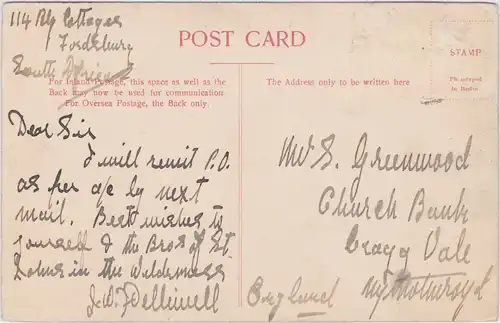 114 Rly Cottages
Fordsburg
South Africa
POST CARD
STAMP
For Inland Postage, this space as well as the
Back may now be used for communication
For Oversea Postage, the Back only.
The Address only to be written here
in Berlin
Dear Sir
I will remit P.O.
as per a/c by next
mail. Best wishes to
yourself & the Bros of St.
Johns in the Wilderness
J. W.
Mr S. Greenwood
Church Bank
Cragg Vale
Mytholmroyd
England